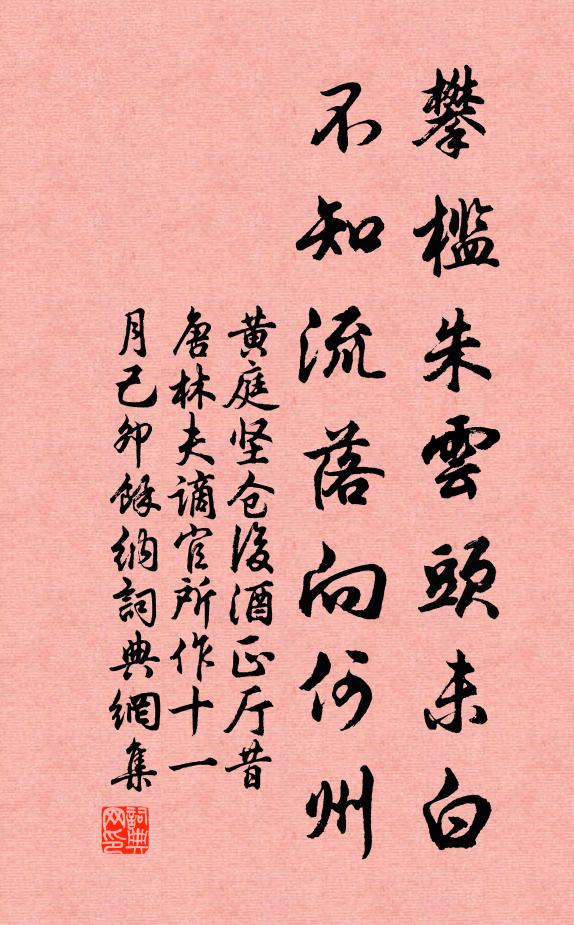 攀檻朱雲頭未白
不知流落向何州
黄庭坚仓後酒正厅昔
唐林夫谪官所作十一
月己卯餘納詞典網集
詞典网印